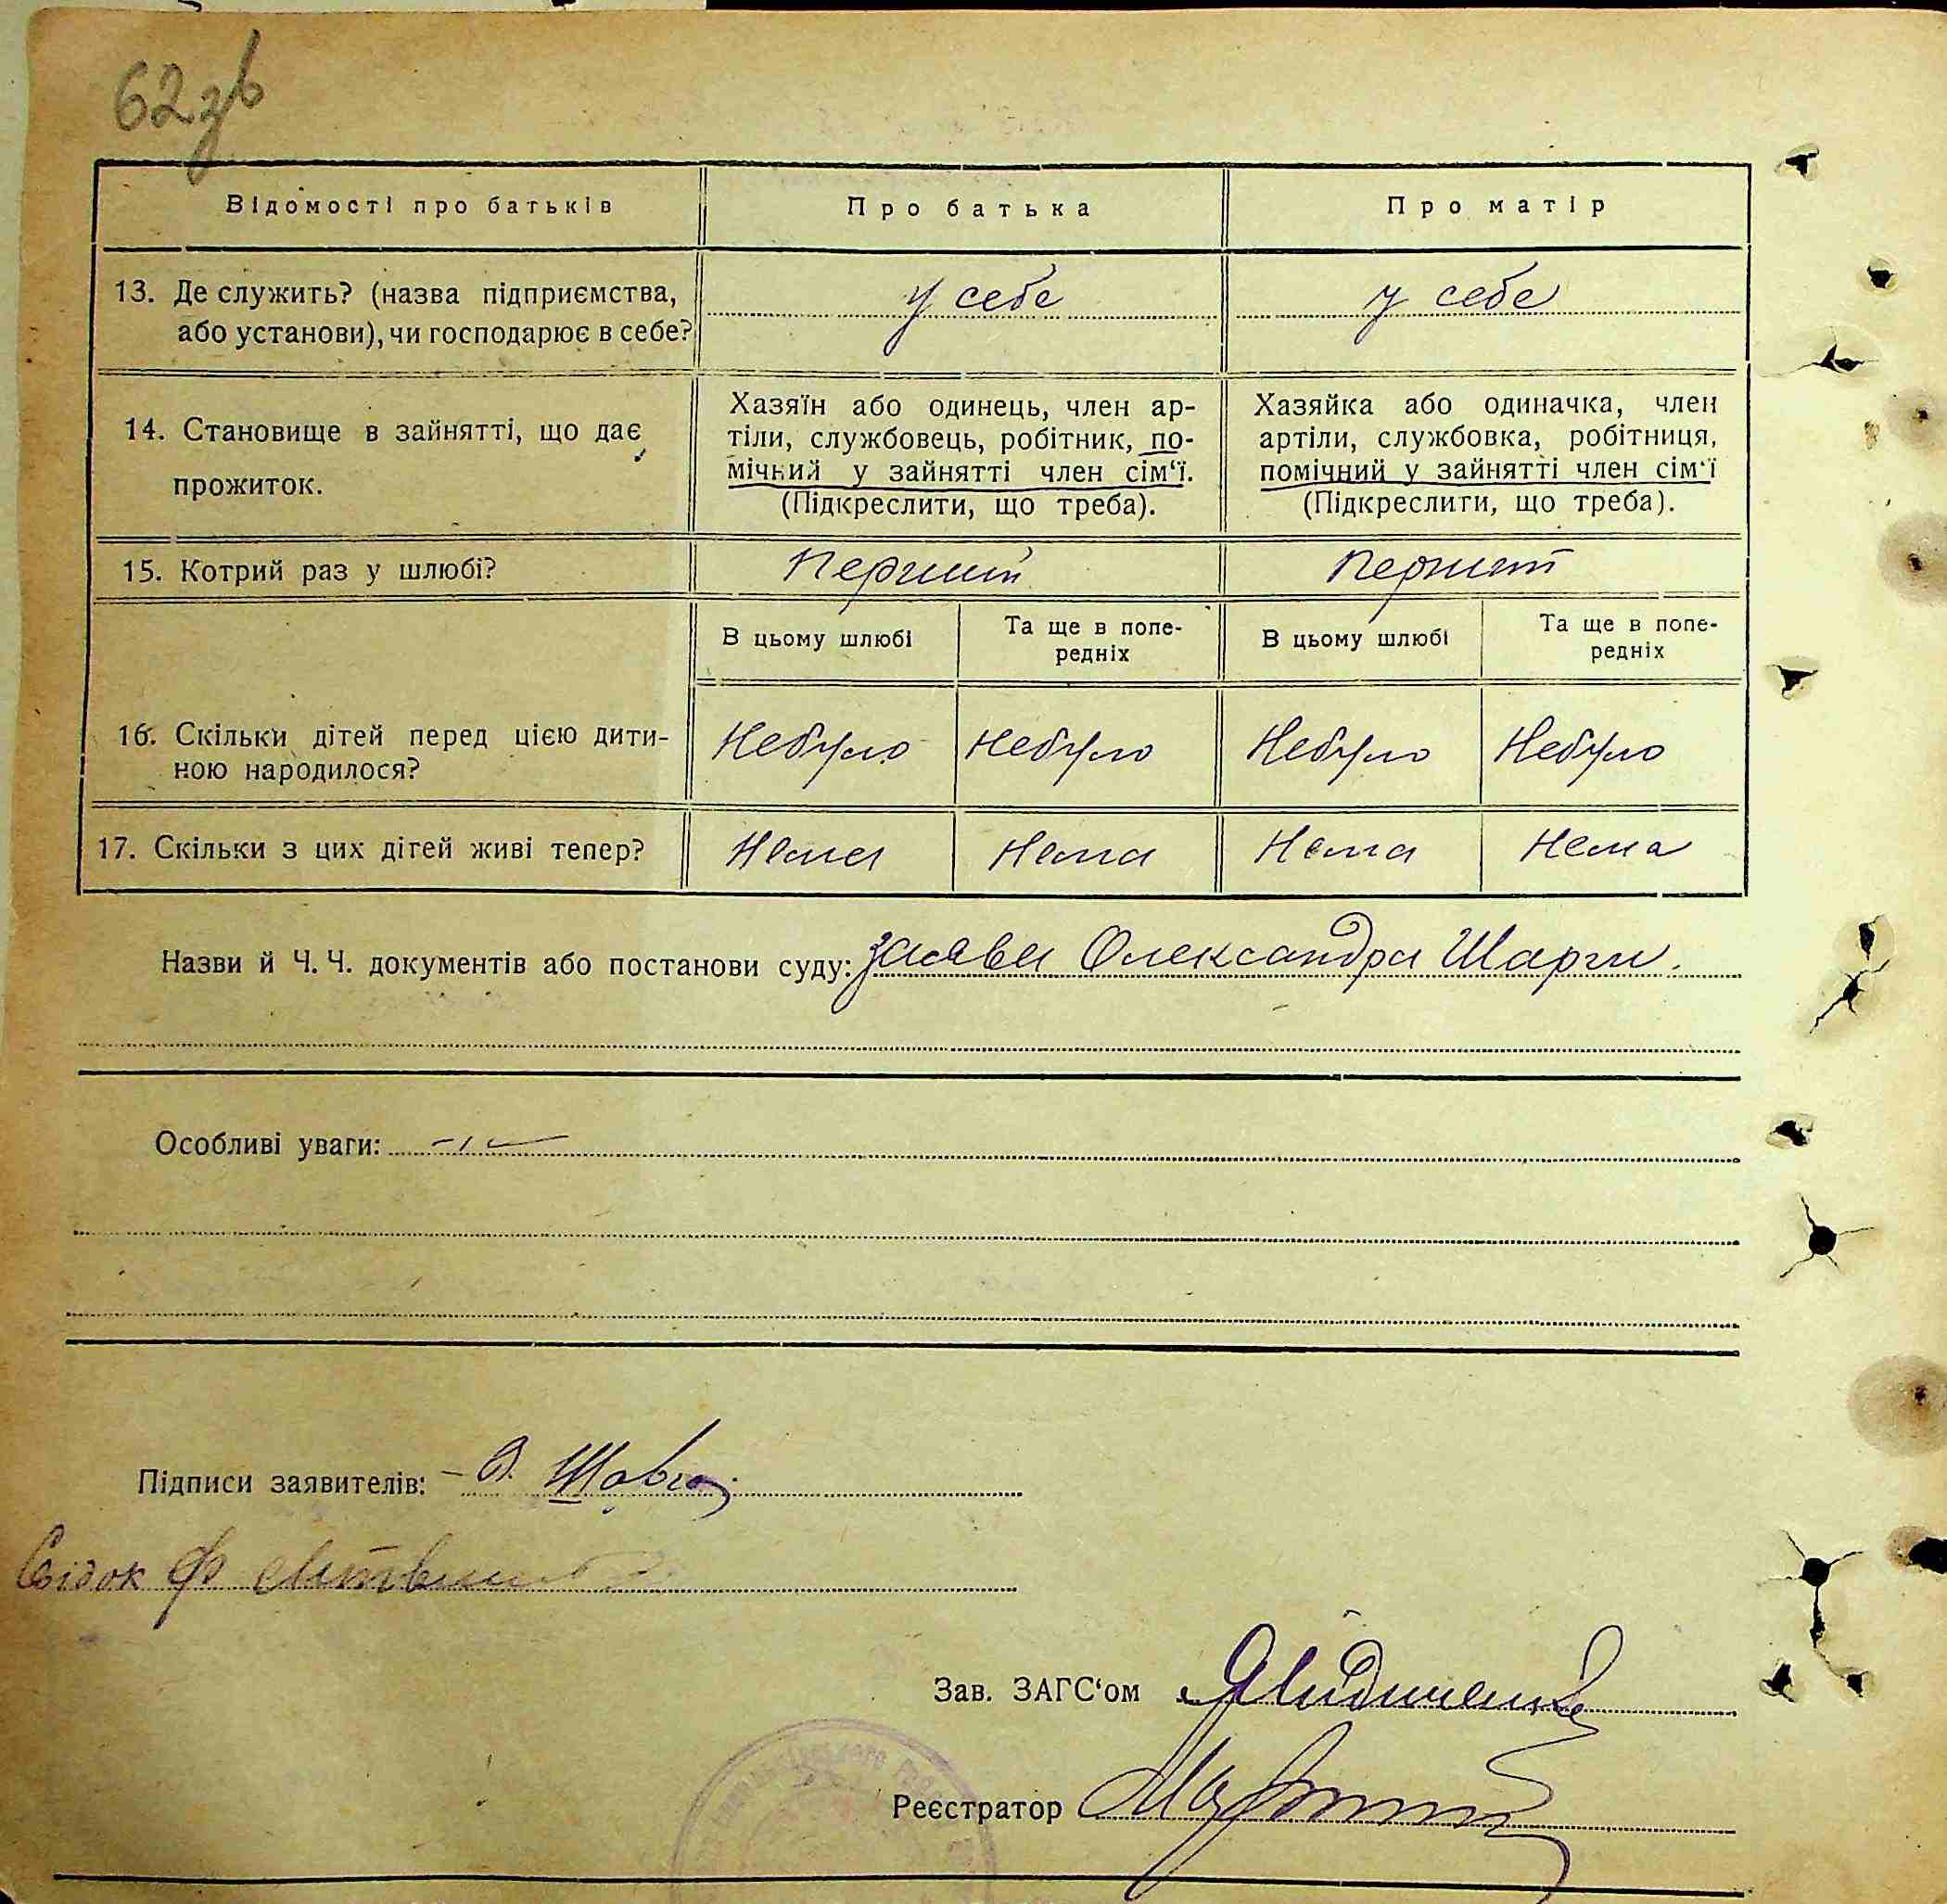 62зв
Відомості про батьків
Про батька
Про матір
13. Де служить? (назва підприємства,
або установи), чи господарює в себе?
у себе
у себе
14. Становище в зайнятті, що дає
прожиток.
Хазяїн або одинець, член ар-
тіли, службовець, робітник, по-
мічний у зайнятті член сім‘ї.
(Підкреслити, що треба).
Хазяйка або одиначка, член
артіли, службовка, робітниця,
помічний у зайнятті член сім‘ї
(Підкреслити, що треба).
15. Котрий раз у шлюбі?
Перший
Перший
В цьому шлюбі
Та ще в попе-
редніх
В цьому шлюбі
Та ще в попе-
редніх
16. Скільки дітей перед цією дити-
ною народилося?
Небуло
Небуло
Небуло
Небуло
17. Скільки з цих дітей живі тепер?
Нема
Нема
Нема
Нема
Назви й Ч. Ч. документів або постанови суду: заява Олександра Шарги.
Особливі уваги:
Підписи заявителів:
Свідок Ф
Зав. ЗАГС‘ом
Реєстратор